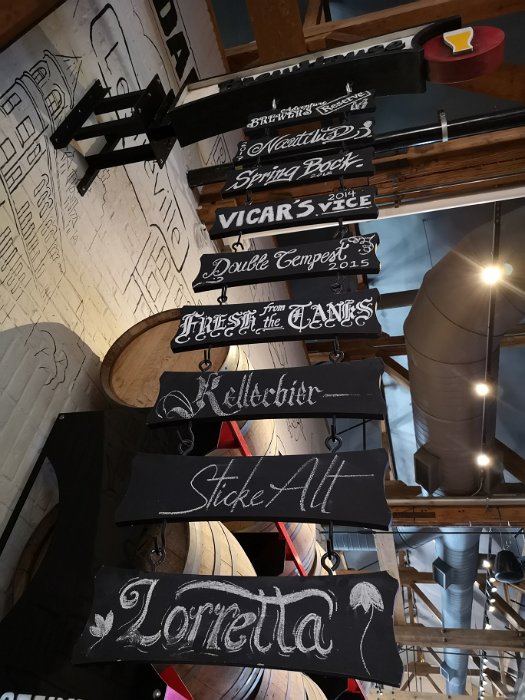 BREWERS Reserve
Nautilus
Spring Bock
VICAR'S VICE 2014
Double Tempest
2015
FRESH from the TANKS
Kellerbier
Sticke Alt
Lorretta